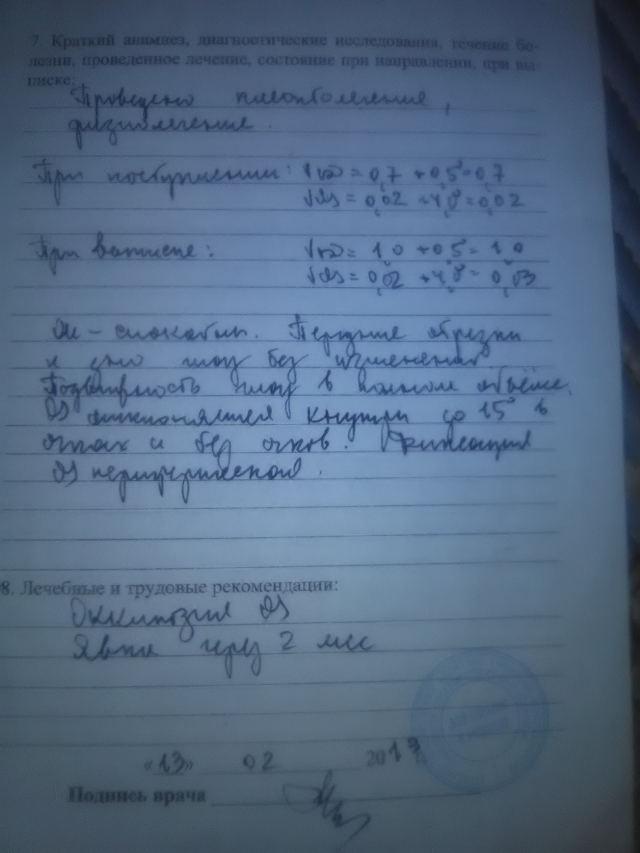 7. Краткий анамнез, диагностические исследования, течение бо-
лезни, проведенное лечение, состояние при направлении, при вы-
писке:
Проведено плеоптолечение,
физиолечение.
При поступлении: Vod = 0,7 +0,5° = 0,7
Vos = 0,02 +4,0° = 0,02
При выписке: Vod = 1,0 +0,5 = 1,0
Vos = 0,02 +4,0 = 0,03
спокойны. Передние отрезки
и дно глаз без изменений.
Подвижность глаз в полном объеме.
OS отклоняется кнутри до 15° в
очках и без очков. Фиксация
OS перицентральная.
8. Лечебные и трудовые рекомендации:
Окклюзия
Явка через 2 мес
«13» 02 2013
Подпись врача